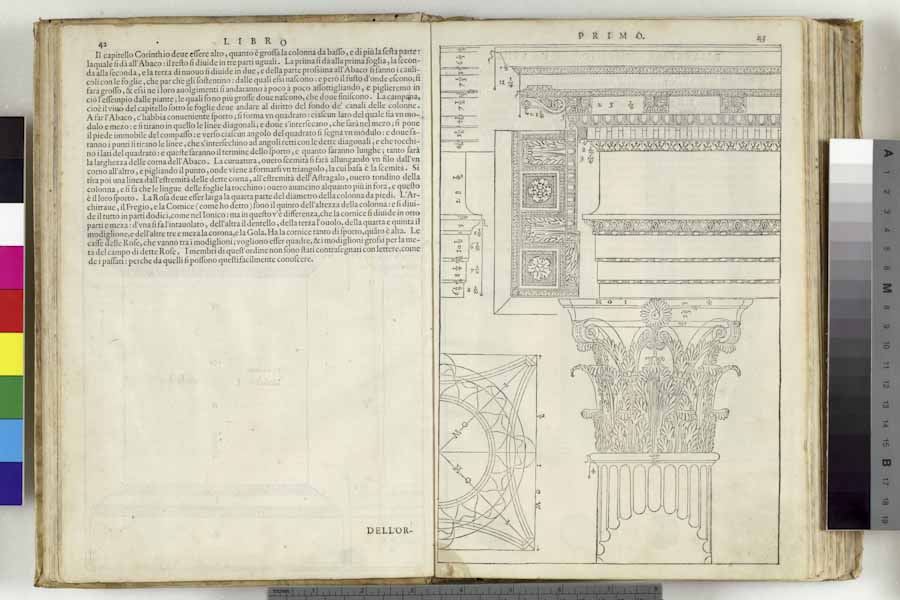 42 LIBRO
Il capitello Corinthio deue essere alto, quanto è grossa la colonna da basso, e di più la sesta parte:
laquale si dà all'Abaco: il resto si diuide in tre parti uguali. La prima si dà alla prima foglia, la secon-
da alla seconda, e la terza di nuouo si diuide in due, e della parte prossima all'Abaco si fanno i cauli-
coli con le foglie, che par che gli sostentino: dalle quali essi nascono: e però il fusto d'onde escono, si
farà grosso, & essi ne i loro auolgimenti si andaranno à poco à poco assottigliando, e piglieremo in
ciò l'essempio dalle piante; le quali sono più grosse doue nascono, che doue finiscono. La campana,
cioè il viuo del capitello sotto le foglie deue andare al diritto del fondo de' canali delle colonne.
A far l'Abaco, c'habbia conueniente sporto, si forma vn quadrato: ciascun lato del quale sia vn mo-
dulo e mezo: e si tirano in quello le linee diagonali, e doue s'intersecano, che sarà nel mezo, si pone
il piede immobile del compasso: e verso ciascun angolo del quadrato si segna vn modulo: e doue sa-
ranno i punti si tirano le linee, che s'intersechino ad angoli retti con le dette diagonali, e che tocchi-
no i lati del quadrato: e queste saranno il termine dello sporto, e quanto saranno lunghe; tanto sarà
la larghezza delle corna dell'Abaco. La curuatura, ouero scemità si farà allungando vn filo dall'vn
corno all'altro, e pigliando il punto, onde viene à formarsi vn triangolo, la cui basa è la scemità. Si
tira poi una linea dall'estremità delle dette corna, all'estremità dell'Astragalo, ouero tondino della
colonna, e si fa che le lingue delle foglie la tocchino: ouero auancino alquanto più in fora, e questo
è il loro sporto. La Rosa deue esser larga la quarta parte del diametro della colonna da piedi. L'Ar-
chitraue, il Fregio, e la Cornice (come ho detto) sono il quinto dell'altezza della colonna: e si diui-
de il tutto in parti dodici, come nel Ionico: ma in questo v'è differenza, che la cornice si diuide in otto
parti e meza: d'vna si fa l'intauolato, dell'altra il dentello, della terza l'ouolo, della quarta e quinta il
modiglione, e dell'altre tre e meza la corona, e la Gola. Ha la cornice tanto di sporto, quanto è alta. Le
casse delle Rose, che vanno tra i modiglioni, vogliono esser quadre, & i modiglioni grossi per la me-
tà del campo di dette Rose. I membri di quest'ordine non sono stati contrasegnati con lettere, come
de i passati: perche da quelli si possono questi facilmente conoscere.
DELL'OR-
PRIMO. 43
MO I